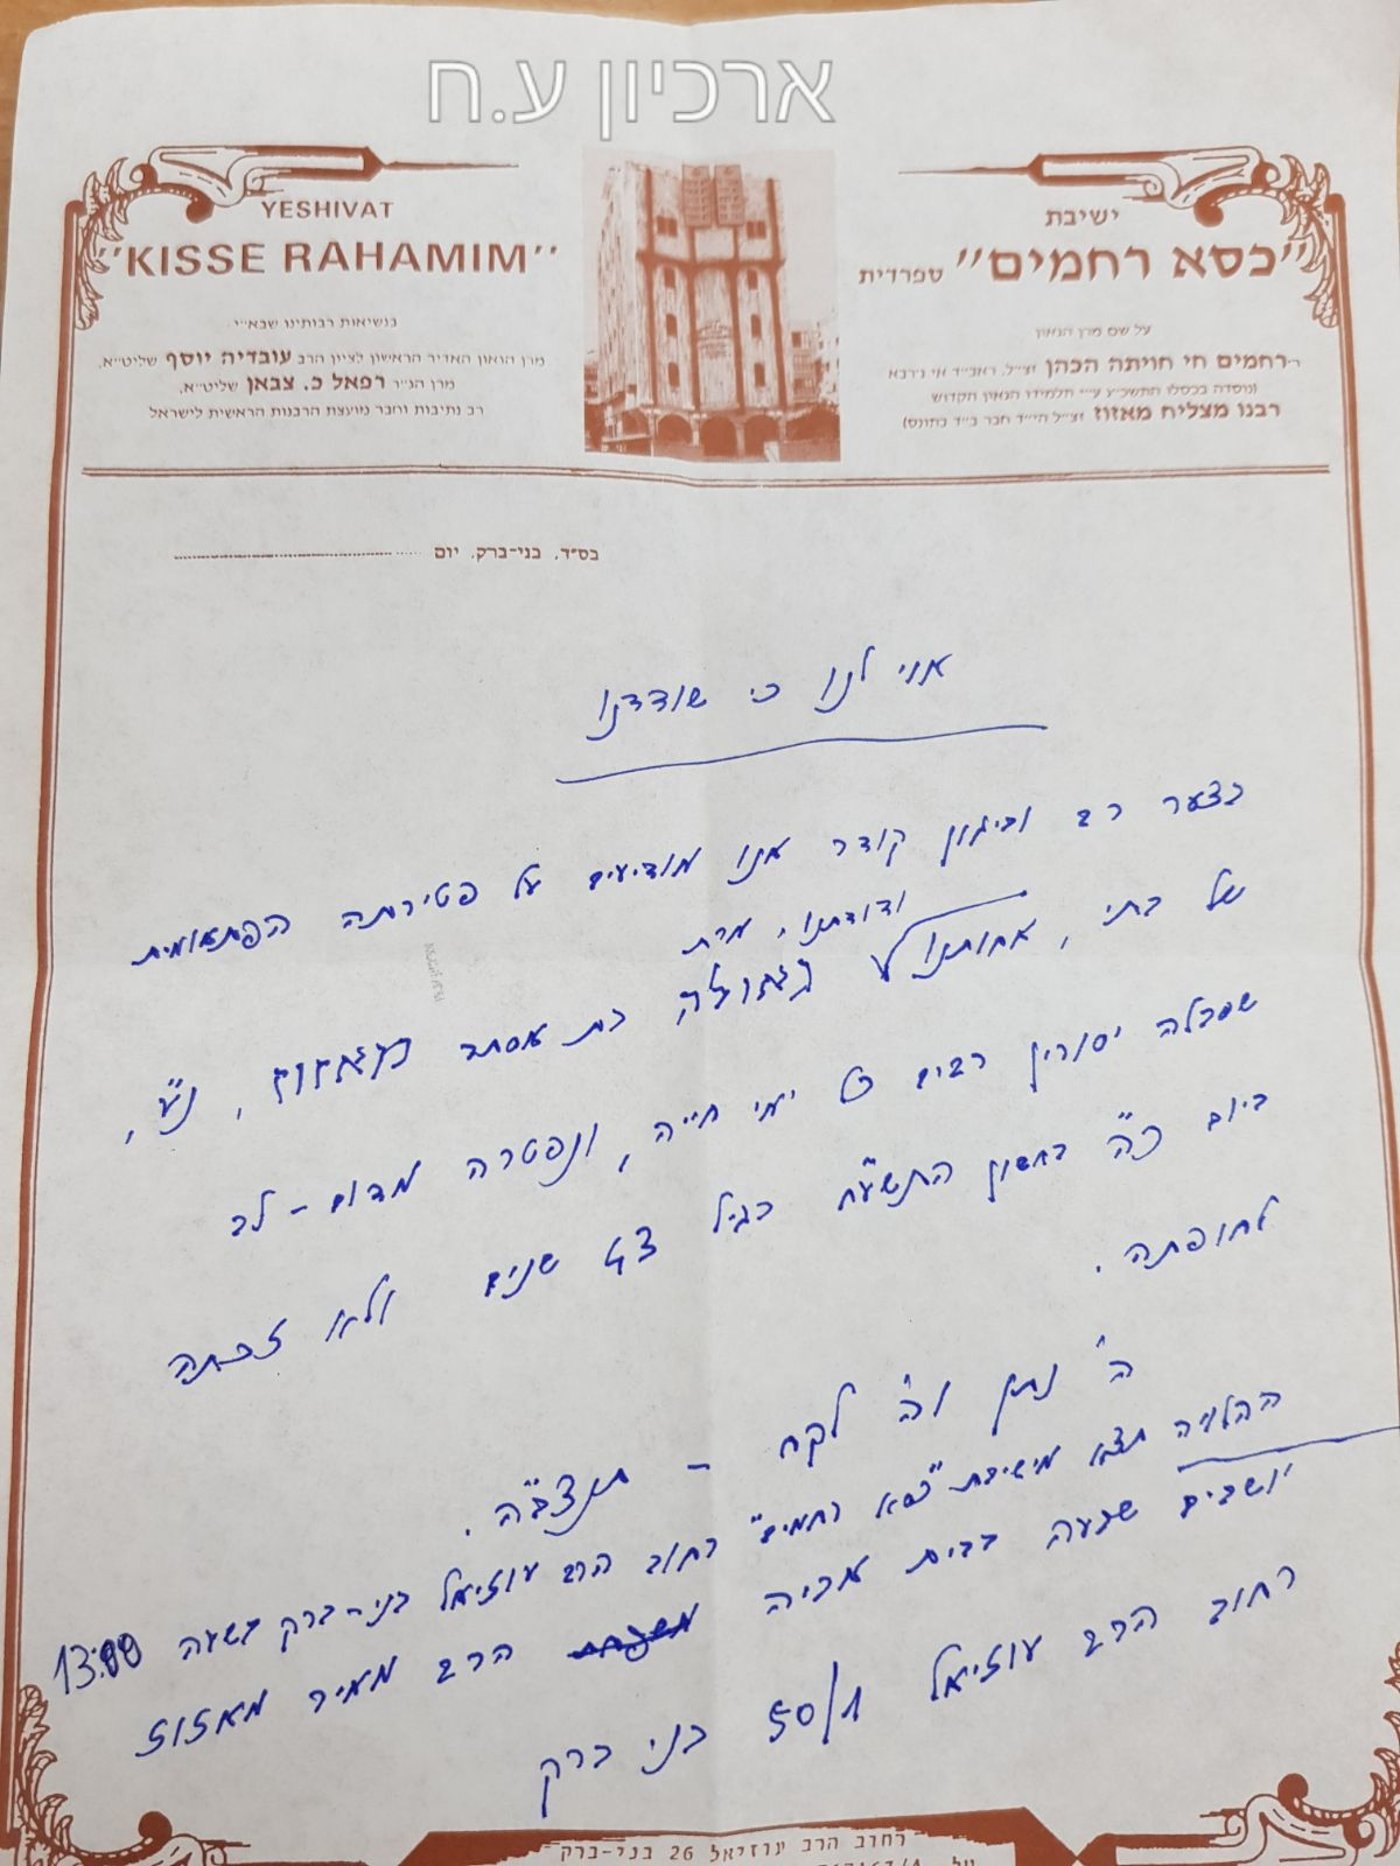 ארכיון ע.ח
ישיבת
"כסא רחמים" ספרדית
על שם מרן הגאון
רחמים חי חויתה הכהן זצ"ל, ראב"ד אי ג'רבא
(נוסדה בכסלו התשכ"ג ע"י תלמידו הגאון הקדוש
רבנו מצליח מאזוז זצ"ל הי"ד חבר ב"ד בתונס)
YESHIVAT
"KISSE RAHAMIM"
בנשיאות רבותינו שבא"י
מרן הגאון האדיר הראשון לציון הרב עובדיה יוסף שליט"א,
מרן הג"ר רפאל כ. צבאן שליט"א,
רב נתיבות וחבר מועצת הרבנות הראשית לישראל
בס"ד, בני-ברק, יום
אוי לנו כי שודדנו
בצער רב וביגון קודר אנו מודיעים על פטירתה הפתאומית
ודודתנו, מרת
של בתי, אחותנו בת אסתר מאזוז, נ"ע,
שסבלה יסורין רבים כל ימי חייה, ונפטרה מדום-לב
ביום כ"ה בחשון התשע"ח בגיל 43 שנים ולא זכתה
לחופתה.
ה' נתן וה' לקח - תנצב"ה.
ההלויה תצא מישיבת "כסא רחמים" רחוב הרב עוזיאל בני-ברק בשעה 13:00
יושבים שבעה בבית אביה הרב מאיר מאזוז
רחוב הרב עוזיאל 50/1 בני ברק
רחוב הרב עוזיאל 26 בני-ברק